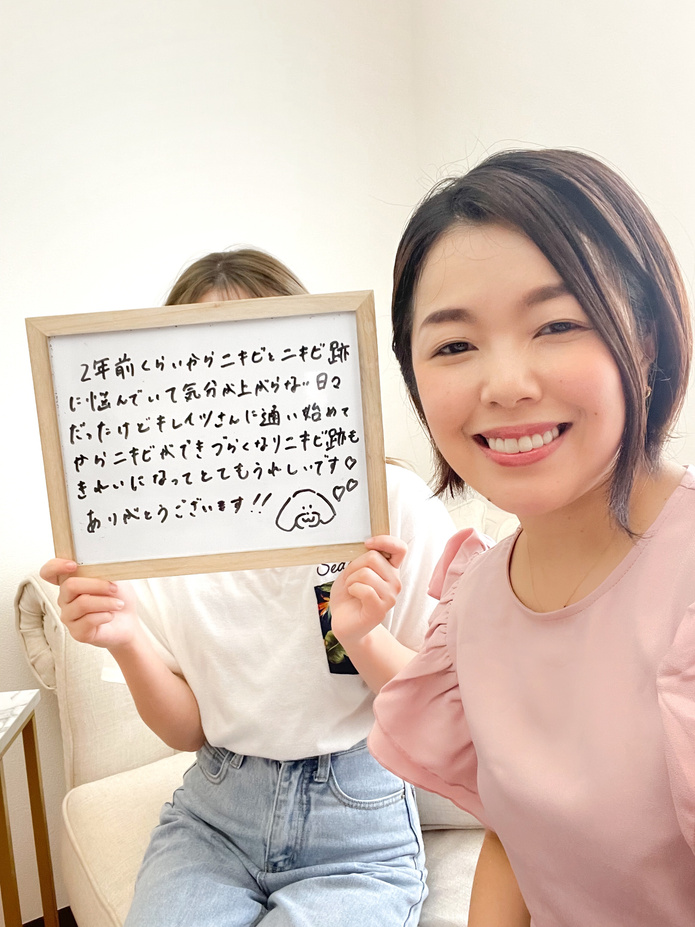 2年前くらいからニキビとニキビ跡
に悩んでいて気分が上がらない日々
だったけどキレイツさんに通い始めて
からニキビができづらくなりニキビ跡も
きれいになってとてもうれしいです♡
ありがとうございます!!
Sea